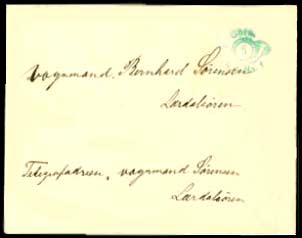 vognmand. Bernhard Sørensen
Lærdalsören
Telegrafadresse, vognmand Sørensen
Lærdalsören